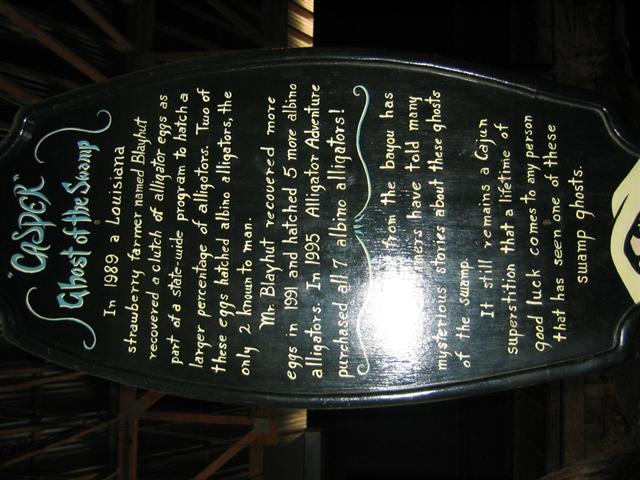 "CASPER"
Ghost of the Swamp
In 1989 a Louisiana
strawberry farmer named Blayhut
recovered a clutch of alligator eggs as
part of a state-wide program to hatch a
larger percentage of alligators. Two of
these eggs hatched albino alligators, the
only 2 known to man.
Mr. Blayhut recovered more
eggs in 1991 and hatched 5 more albino
alligators. In 1995 Alligator Adventure
purchased all 7 albino alligators!
from the bayou has
have told many
mysterious stories about these ghosts
of the swamp.
It still remains a Cajun
superstition that a lifetime of
good luck comes to any person
that has seen one of these
swamp ghosts.